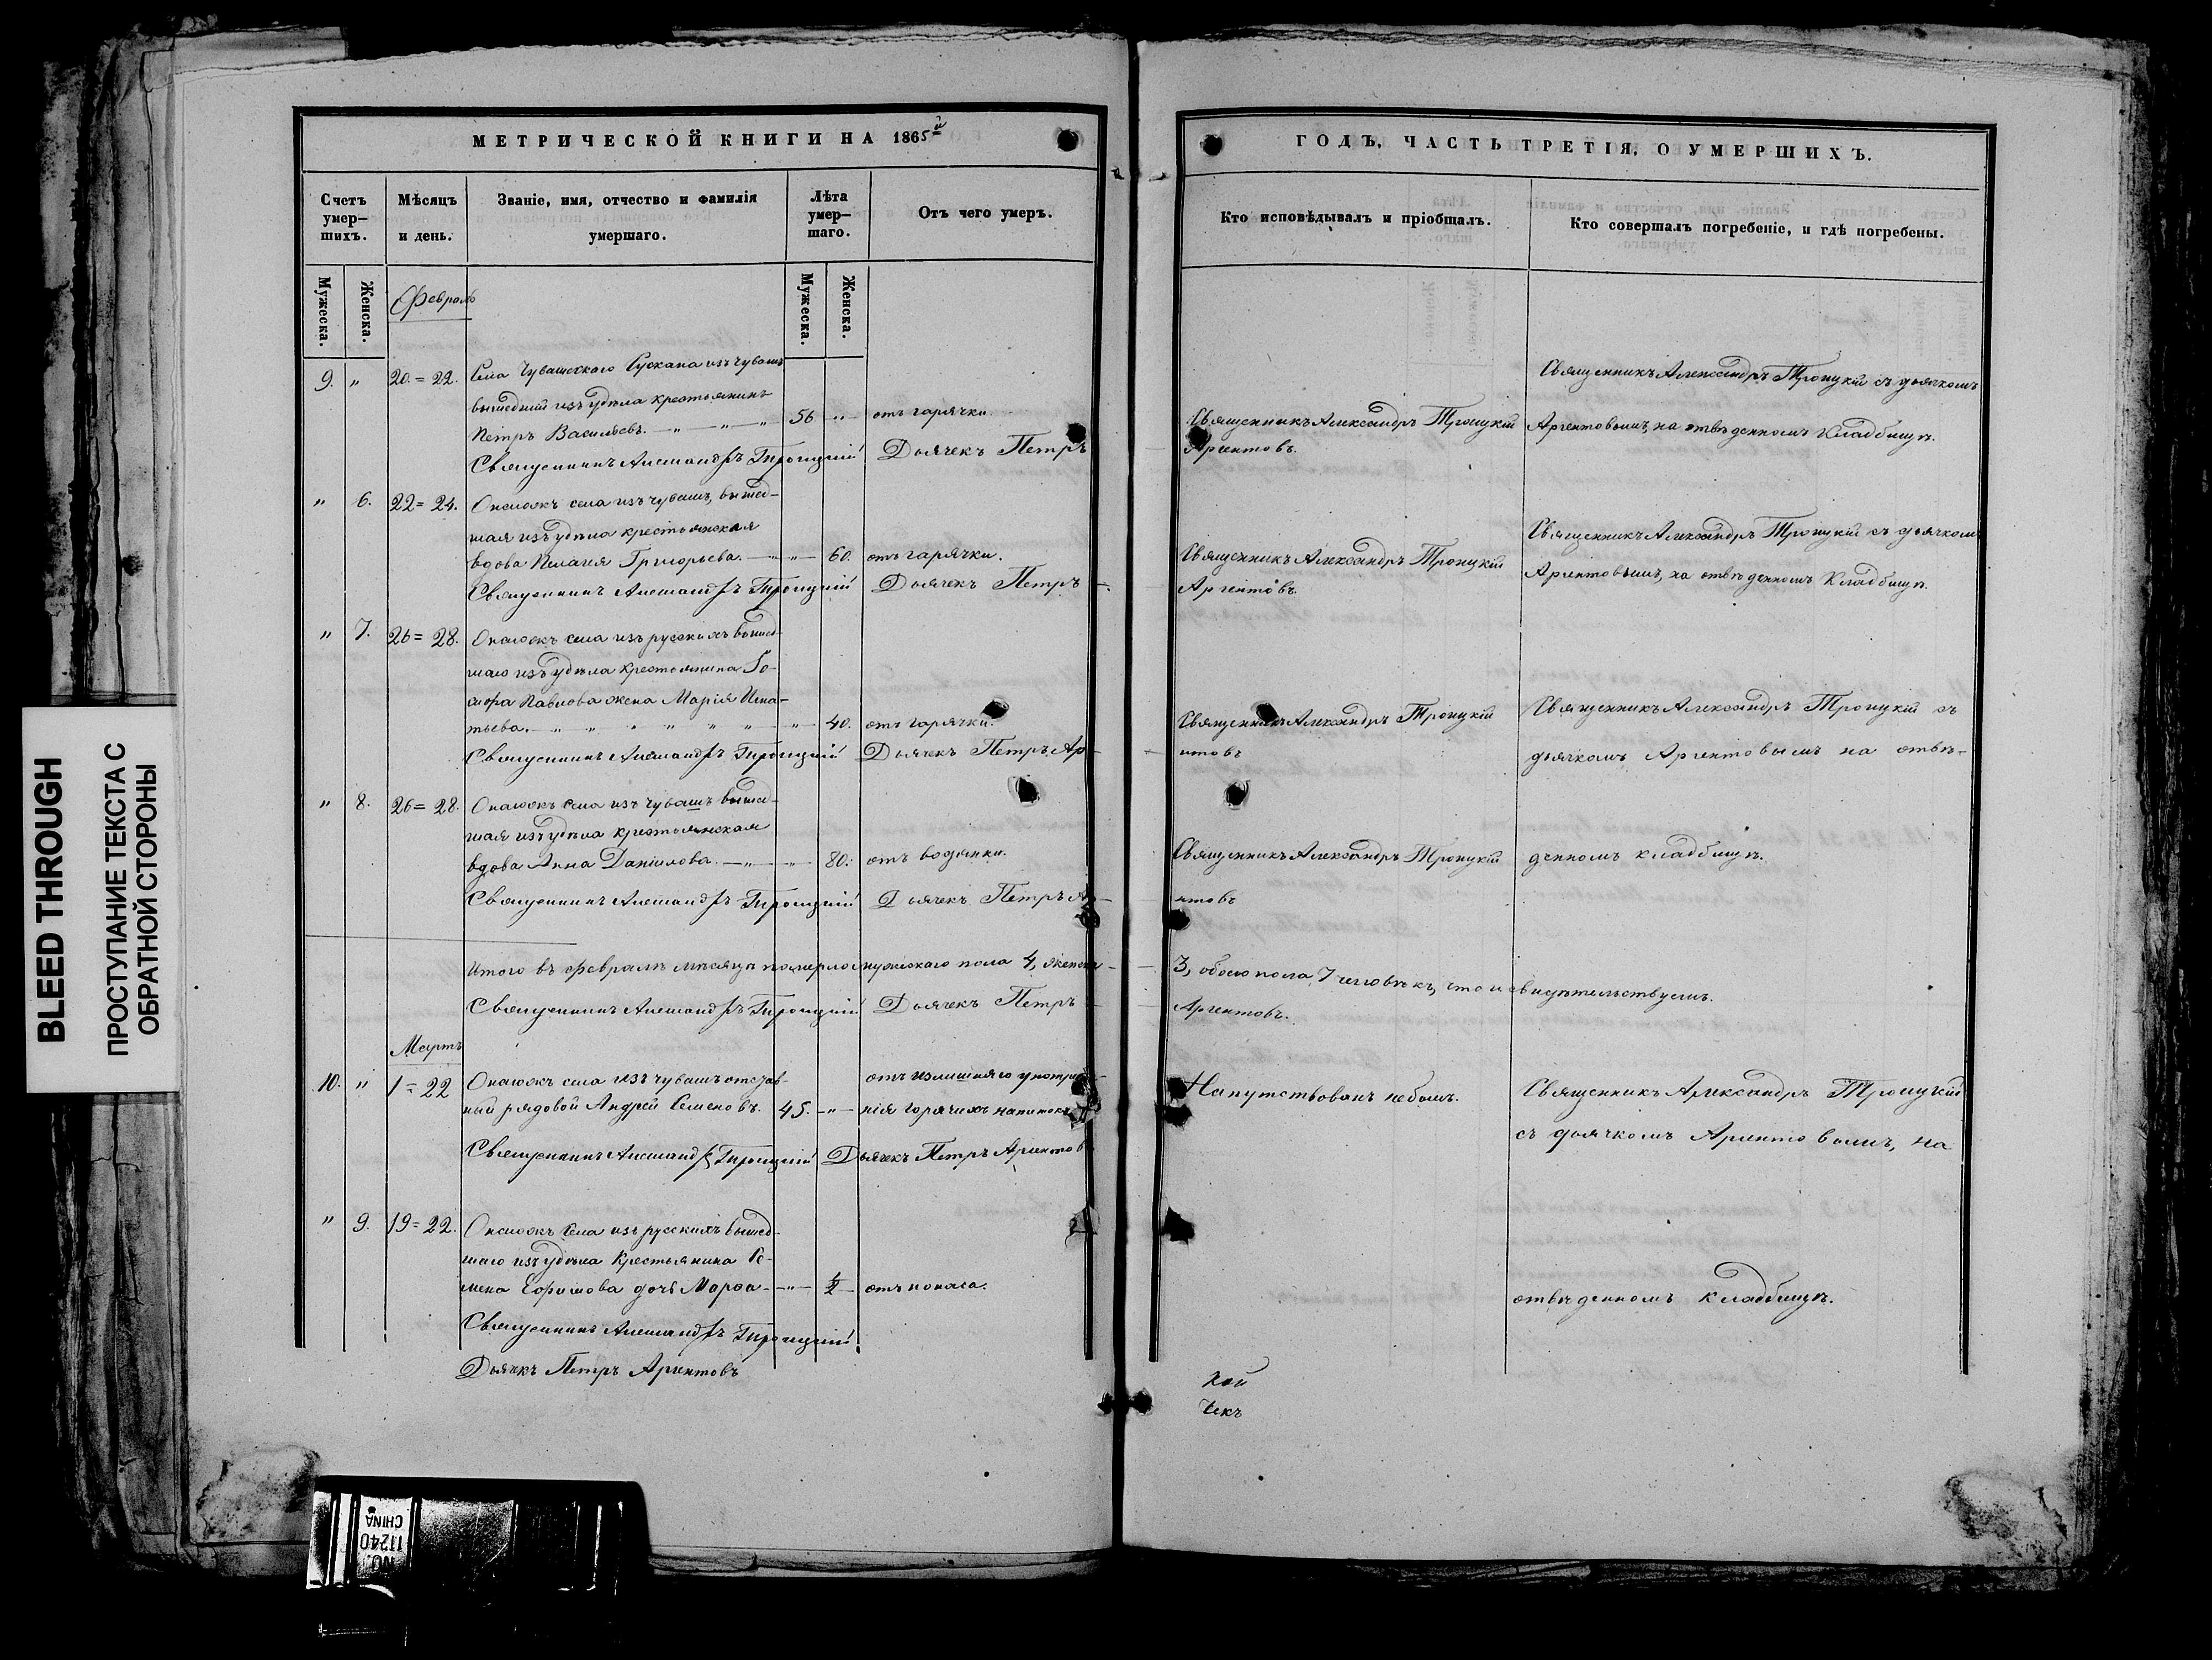 МЕТРИЧЕСКОЙ КНИГИ НА 1865й
Счетъ умер-шихъ.
Мѣсяцъ и день.
Званіе, имя, отчество и фамилія умершаго.
Лѣта умер-шаго.
Отъ чего умеръ.
Мужеска.
Женска.
Мужеска.
Женска.
Февраль
9. " 20.=22. Села Чувашскаго Сускана изъ чувашъ
вышедшій изъ удѣла крестьянинъ
Петръ Васильевъ. 56 " отъ гарячки.
Священникъ Александръ Троицкій Дьячекъ Петръ
" 6. 22=24. Онагожъ села изъ чувашъ, вышед-
шая изъ удѣла крестьянская
вдова Пелагея Григорьева. " 60. отъ гарячки.
Священникъ Александръ Троицкій Дьячекъ Петръ
" 7. 26=28. Онагожъ села изъ русскихъ вышед-
шаго изъ удѣла крестьянина
Павлова жена Марія Игна-
тьева. " 40. отъ гарячки.
Священникъ Александръ Троицкій Дьячекъ Петръ Ар-
" 8. 26=28. Онагожъ села изъ чувашъ вышед-
шая изъ удѣла крестьянская
вдова Анна Даніилова. " 80. отъ водянки.
Священникъ Александръ Троицкій Дьячекъ Петръ Ар-
Итого въ февралѣ мѣсяцѣ померло мужескаго пола 4, женска-
Священникъ Александръ Троицкій Дьячекъ Петръ
Мартъ
10. " 1=22 Онагожъ села изъ чувашъ отстав- отъ излишняго употреб-
ный рядовой Андрей Семеновъ. 45. " нія горячихъ напитокъ
Священникъ Александръ Троицкій Дьячекъ Петръ Аргентов
" 9. 19=22. Онагожъ села изъ русскихъ вышед-
шаго изъ удѣла Крестьянина Се-
мена Ефимова дочь Марѳа " 1/2 отъ поноса.
Священникъ Александръ Троицкій
Дьячекъ Петръ Аргентовъ
ГОДЪ, ЧАСТЬ ТРЕТІЯ, О УМЕРШИХЪ.
Кто исповѣдывалъ и пріобщалъ.
Кто совершалъ погребеніе, и гдѣ погребены.
Священникъ Александръ Троицкій съ дьячкомъ
Священникъ Александръ Троицкій Аргентовымъ, на отведенномъ Кладбищѣ.
Аргентовъ.
Священникъ Александръ Троицкій съ дьячкомъ
Священникъ Александръ Троицкій Аргентовымъ, на отведенномъ Кладбищѣ.
Аргентовъ.
Священникъ Александръ Троицкій Священникъ Александръ Троицкій съ
нтовъ дьячкомъ Аргентовымъ на отве-
Священникъ Александръ Троицкій денномъ кладбищѣ.
нтовъ
3, обоего пола 7 человѣкъ, что и свидѣтельствуемъ.
Аргентовъ.
Напутствованъ небылъ. Священникъ Александръ Троицкій
съ дьячкомъ Аргентовымъ, на
отведенномъ кладбищѣ.
кой
чекъ
BLEED THROUGH
ПРОСТУПАНИЕ ТЕКСТА С
ОБРАТНОЙ СТОРОНЫ
NO. 11240
CHINA